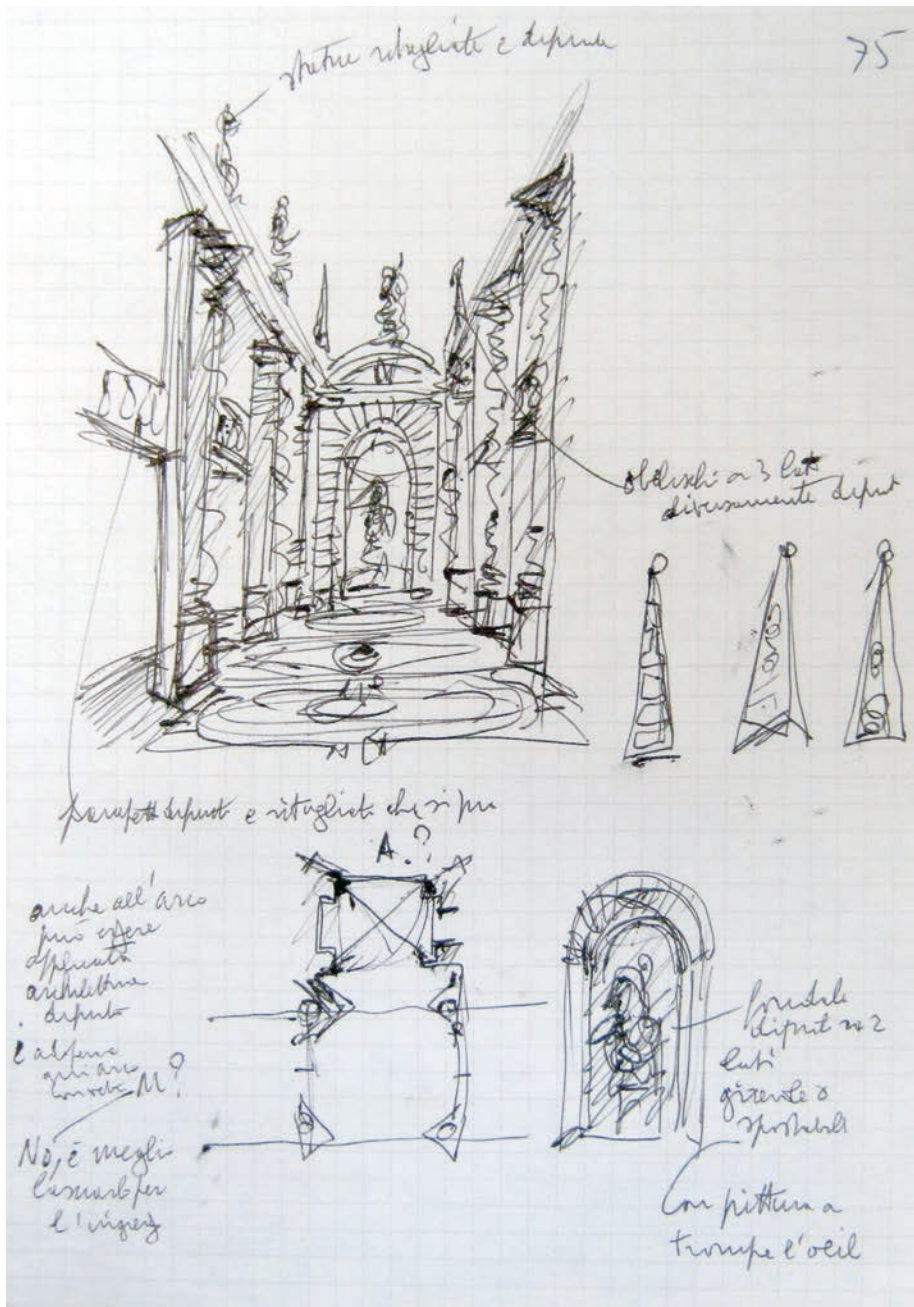 statue ritagliate e dipinte
75
obelischi a 3 lati
diversamente dipint
parapetti dipinti e ritagliati che si può
A.?
anche all'arco
può essere
applicata
architettura
dipinta
M?
No, è meglio
lasciarlo per
l'ingress
fondale
dipinto a 2
lati
girevole o
spostabile
con pittura a
trompe l'oeil